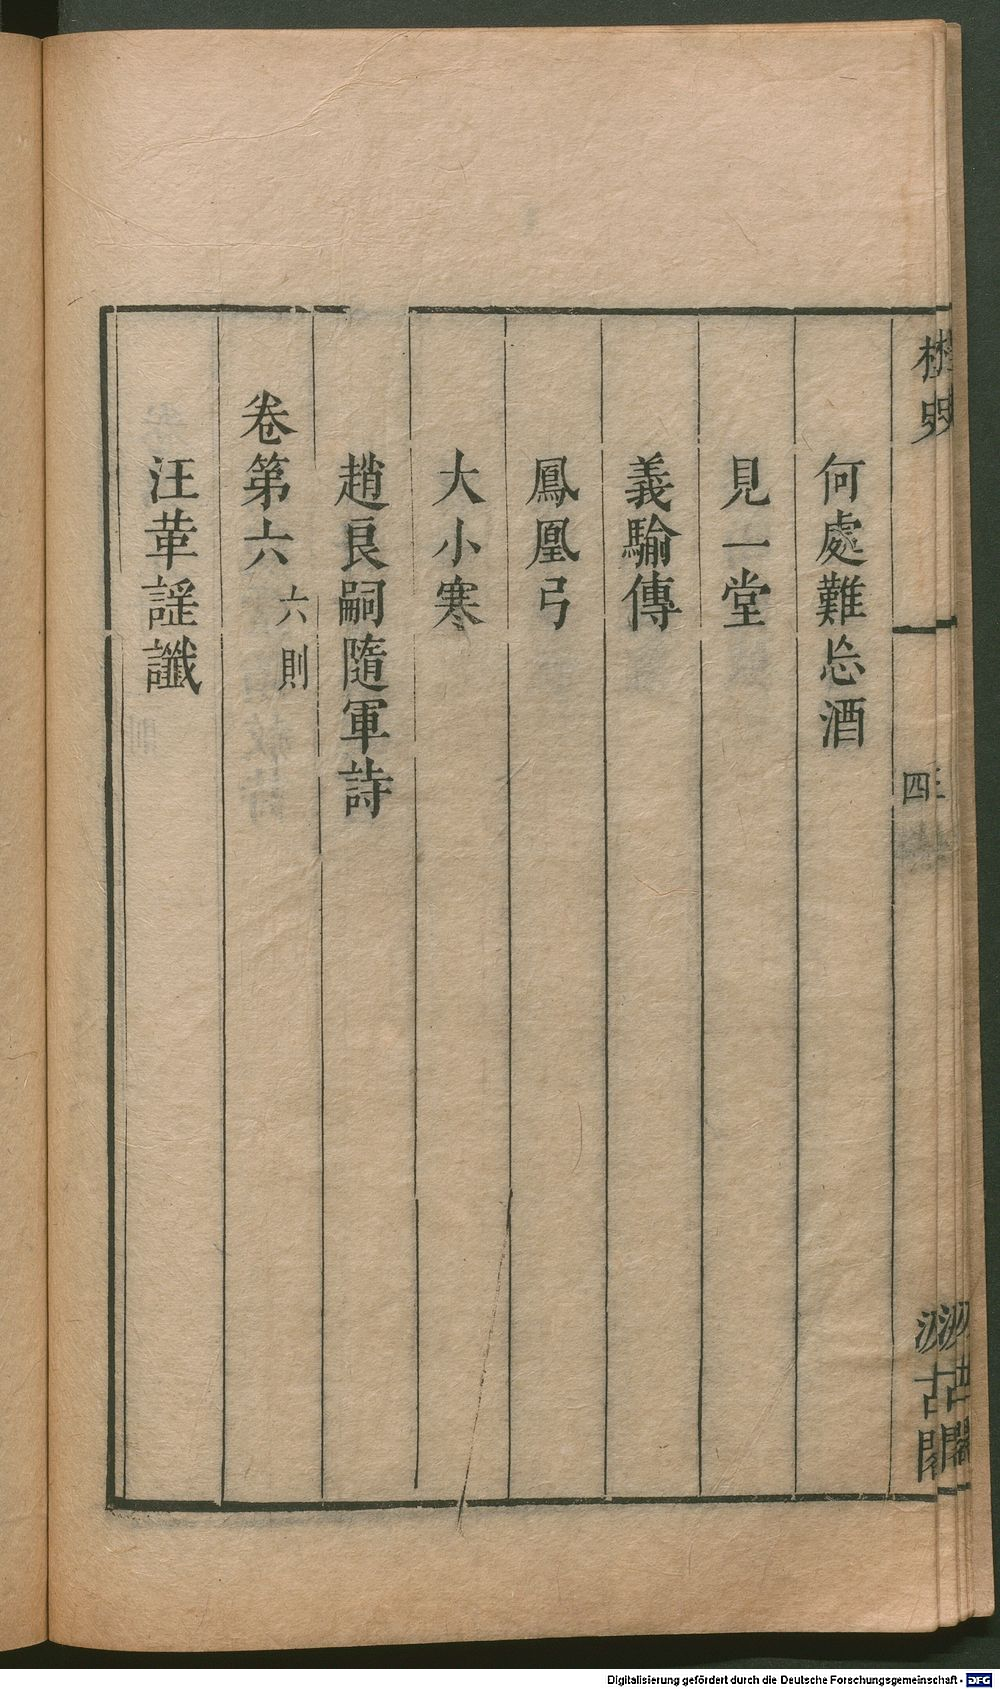 何處難忘酒
見一堂
義騟傳
鳳凰弓
大小寒
趙良嗣隨軍詩
卷第六 六則
汪革謡讖
四
古閣
Digitalisierung gefördert durch die Deutsche Forschungsgemeinschaft - DFG